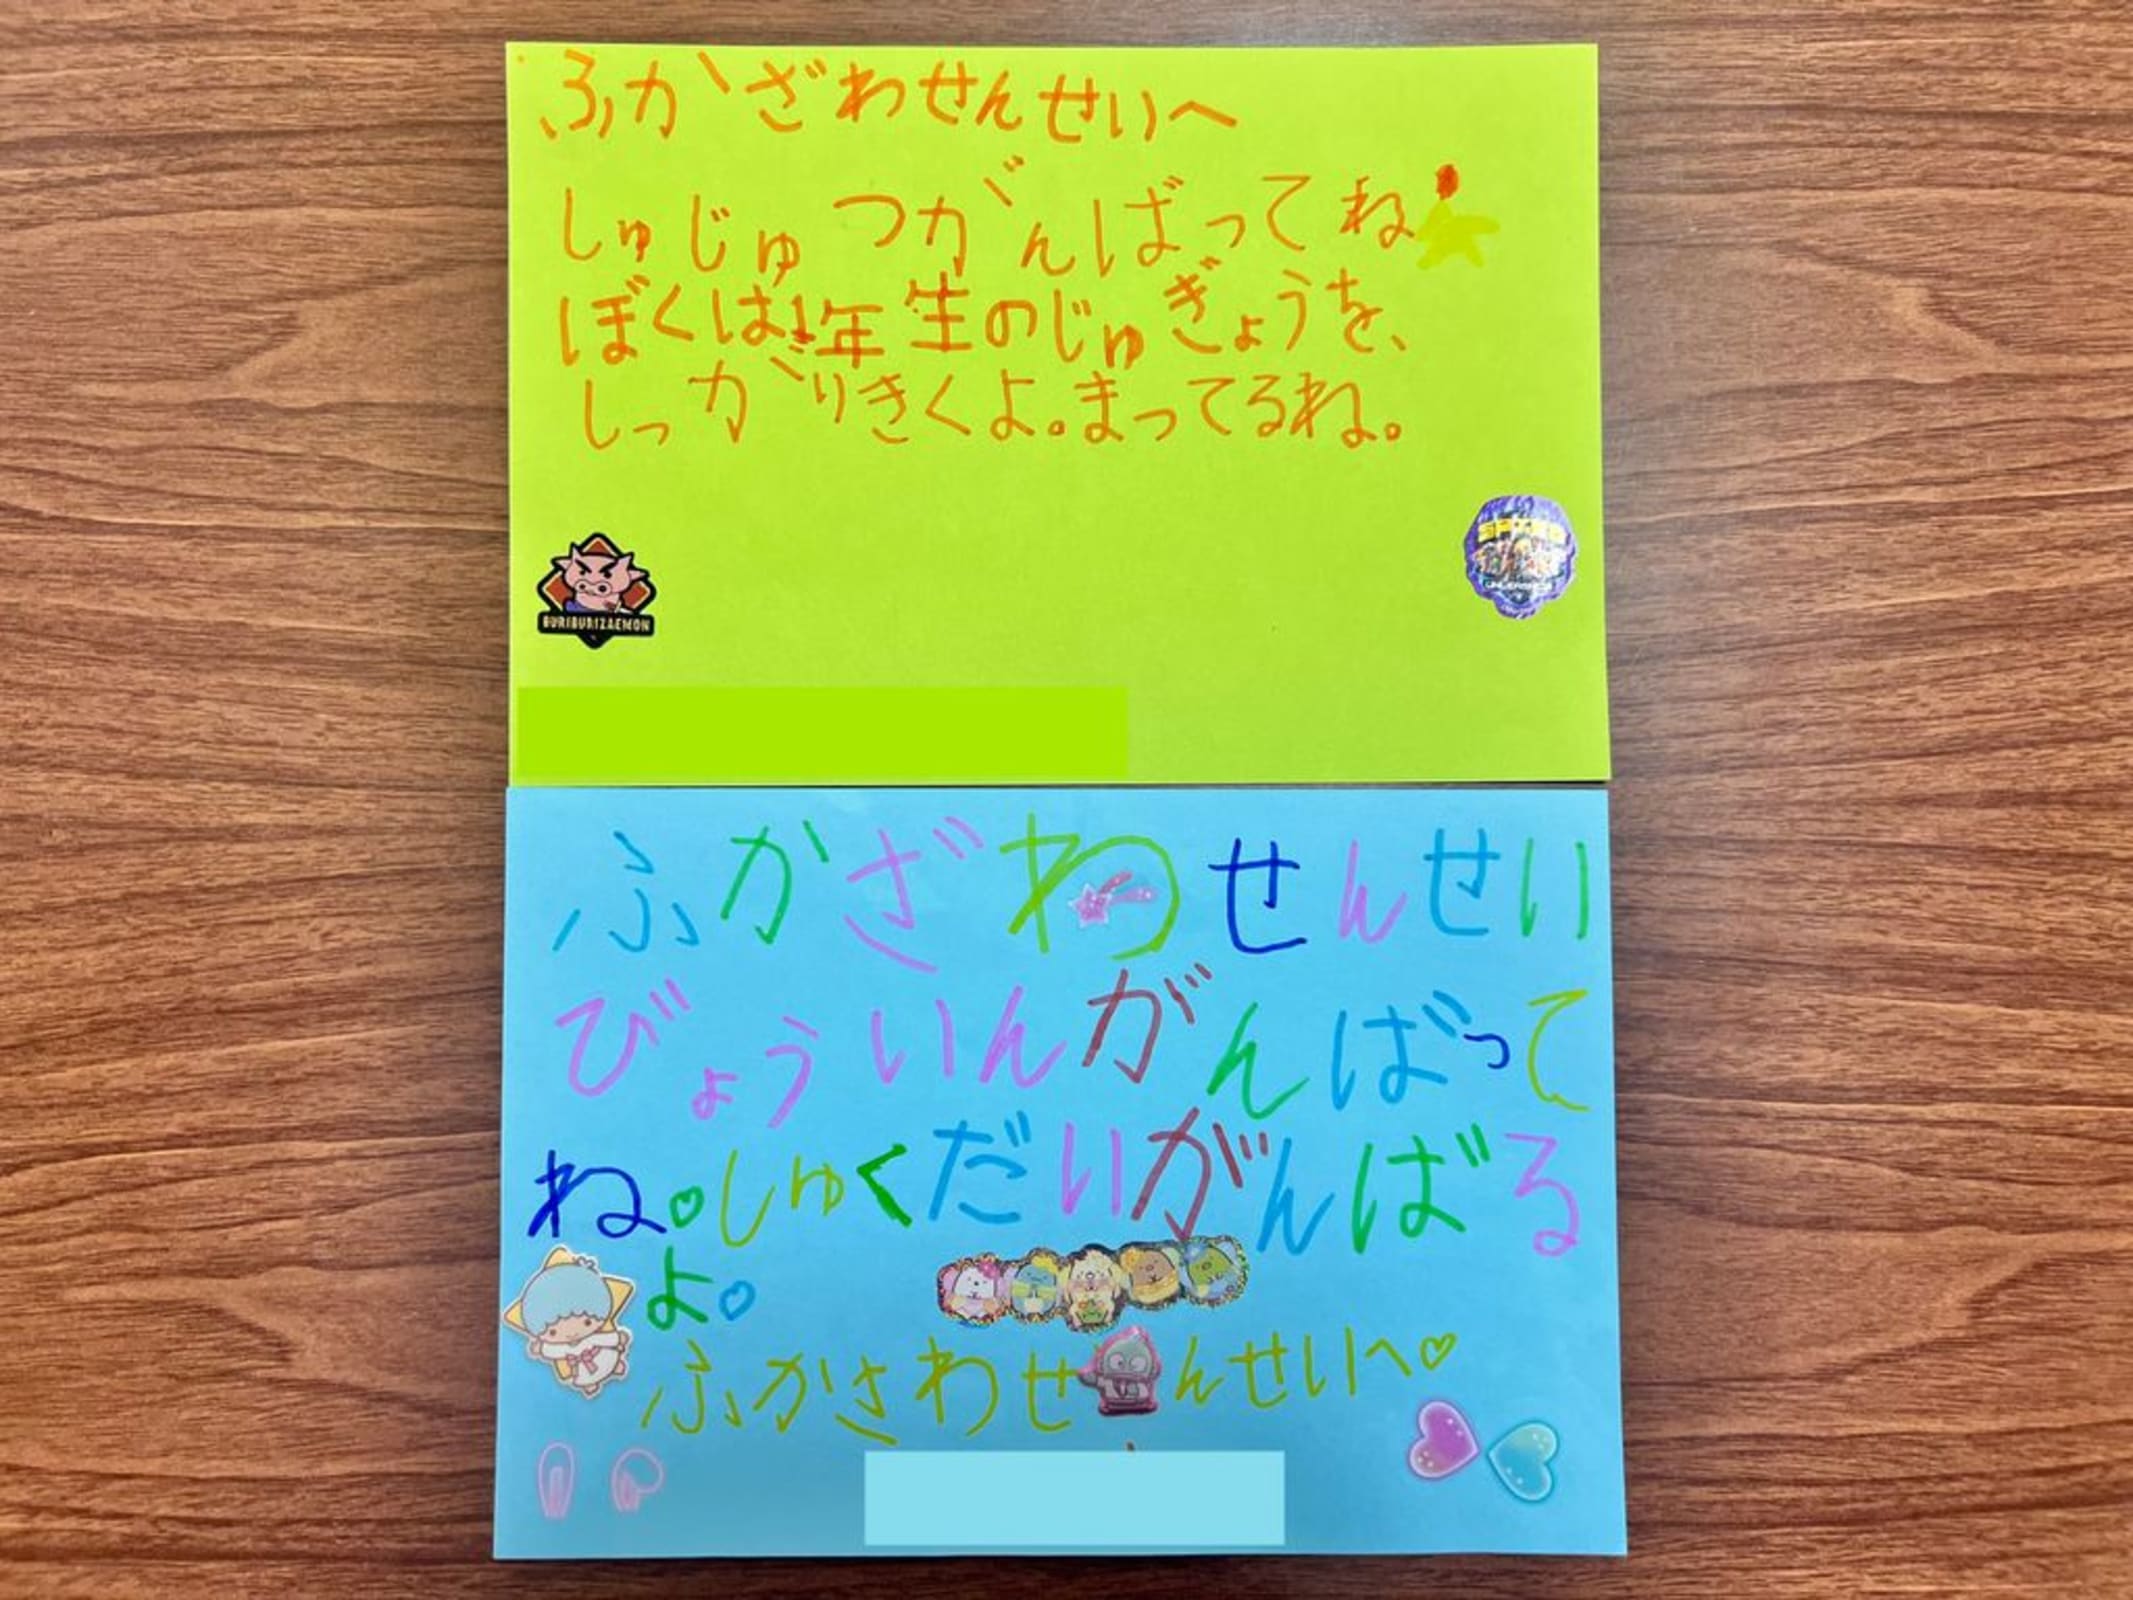 ふかざわせんせいへ
しゅじゅつがんばってね
ぼくは1年生のじゅぎょうを、
しっがりきくよ。まってるね。
BURIBURIZAEMON
ふかざわせんせい
びょういんがんばって
ね。♡しゅくだいがんばる
よ。
ふかさわせんせいへ♡